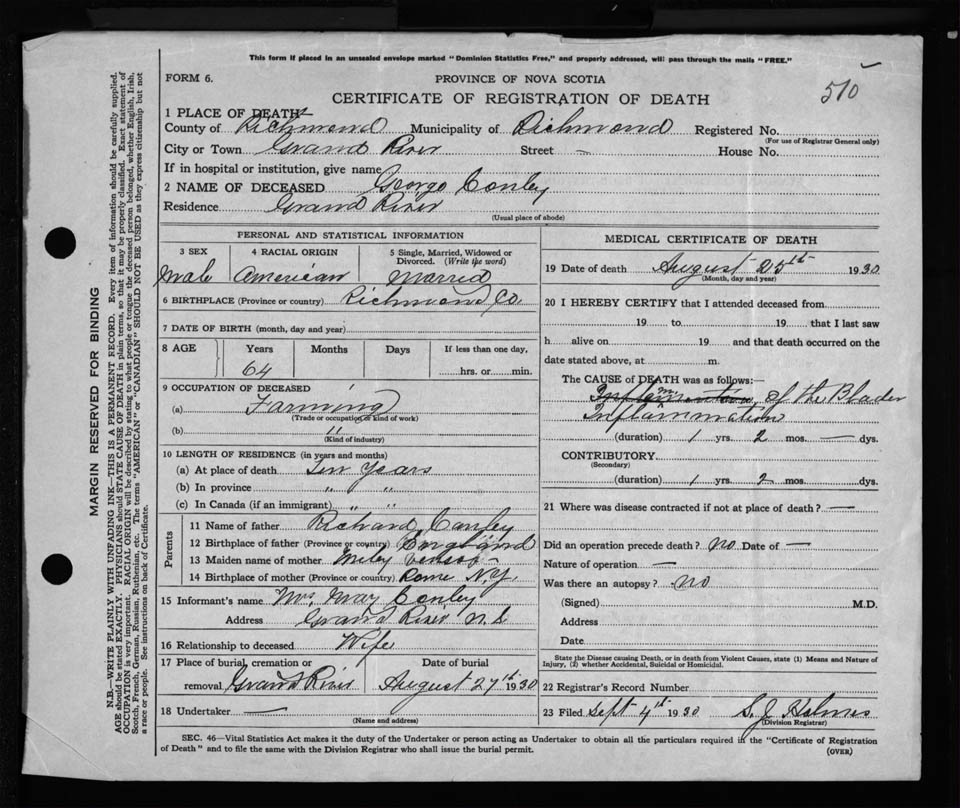 This form if placed in an unsealed envelope marked "Dominion Statistics Free," and properly addressed, will pass through the mails "FREE."
FORM 6.
PROVINCE OF NOVA SCOTIA
510
CERTIFICATE OF REGISTRATION OF DEATH
1 PLACE OF DEATH
County of Richmond Municipality of Richmond Registered No.
(For use of Registrar General only)
City or Town Grand River Street — House No.
If in hospital or institution, give name
2 NAME OF DECEASED George Conley
Residence Grand River
(Usual place of abode)
PERSONAL AND STATISTICAL INFORMATION
3 SEX 4 RACIAL ORIGIN 5 Single, Married, Widowed or Divorced. (Write the word)
Male American Married
6 BIRTHPLACE (Province or country) Richmond Co.
7 DATE OF BIRTH (month, day and year)
8 AGE Years Months Days If less than one day,
64 hrs. or min.
9 OCCUPATION OF DECEASED
(a) Farming
(Trade or occupation or kind of work)
(b) "
(Kind of industry)
10 LENGTH OF RESIDENCE (in years and months)
(a) At place of death Ten Years
(b) In province " "
(c) In Canada (if an immigrant) " "
Parents
11 Name of father Richard Conley
12 Birthplace of father (Province or country) England
13 Maiden name of mother
14 Birthplace of mother (Province or country) Rome N.Y.
15 Informant's name Mrs May Conley
Address Grand River N.S.
16 Relationship to deceased Wife
17 Place of burial, cremation or Date of burial
removal Grand River August 27th 1930
18 Undertaker —
(Name and address)
MEDICAL CERTIFICATE OF DEATH
19 Date of death August 25th 1930
(Month, day and year)
20 I HEREBY CERTIFY that I attended deceased from
19 to 19 that I last saw
h alive on 19 and that death occurred on the
date stated above, at m.
The CAUSE of DEATH was as follows:—
of the Blader
Inflammation
(duration) 1 yrs. 2 mos. — dys.
CONTRIBUTORY
(Secondary)
(duration) 1 yrs. 2 mos. dys.
21 Where was disease contracted if not at place of death? —
Did an operation precede death? no Date of —
Nature of operation —
Was there an autopsy? no
(Signed) M.D.
Address
Date
State the Disease causing Death, or in death from Violent Causes, state (1) Means and Nature of
Injury, (2) whether Accidental, Suicidal or Homicidal.
22 Registrar's Record Number
23 Filed Sept 4th 1930 S. J. Holmes
(Division Registrar)
SEC. 46—Vital Statistics Act makes it the duty of the Undertaker or person acting as Undertaker to obtain all the particulars required in the "Certificate of Registration
of Death" and to file the same with the Division Registrar who shall issue the burial permit.
(OVER)
MARGIN RESERVED FOR BINDING
N.B.—WRITE PLAINLY WITH UNFADING INK—THIS IS A PERMANENT RECORD. Every item of information should be carefully supplied.
AGE should be stated EXACTLY. PHYSICIANS should STATE CAUSE OF DEATH in plain terms, so that it may be properly classified. Exact statement of
OCCUPATION is very important. RACIAL ORIGIN will be described by stating to what people or tongue the deceased person belonged, whether English, Irish,
Scotch, French, German, Russian, Ruthenian, etc. The terms "AMERICAN" or "CANADIAN" SHOULD NOT BE USED as they express citizenship but not
a race or people. See instructions on back of Certificate.